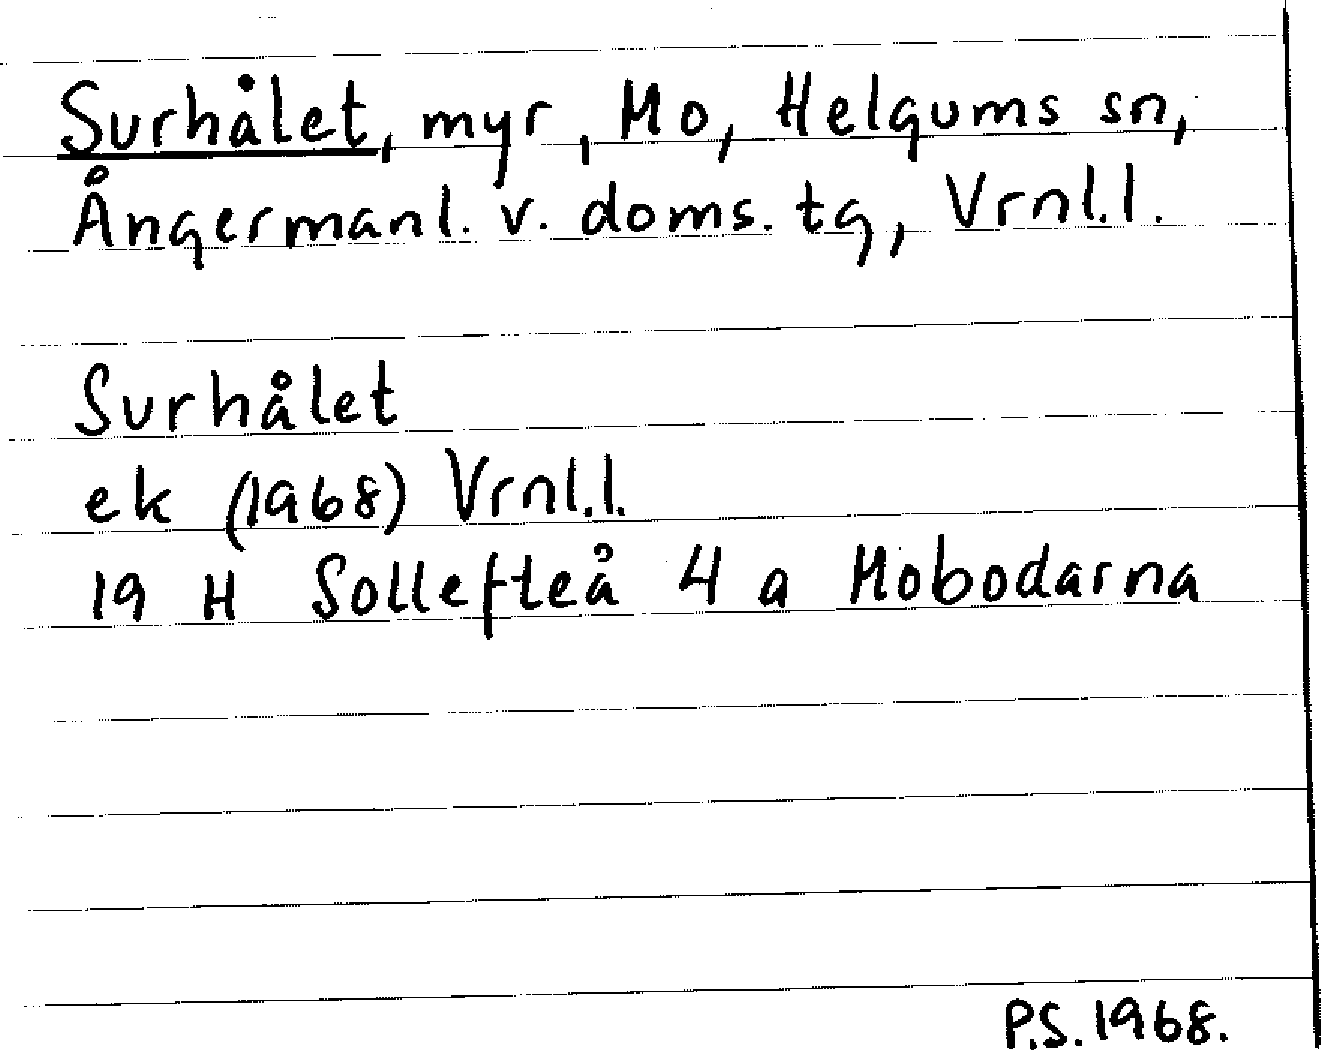 Surhålet, myr, Mo, Helgums sn,
Ångermanl. v. doms. tg, Vrnl.l.
Surhålet
ek (1968) Vrnl.l.
19 H Sollefteå 4 a Mobodarna
P.S. 1968.